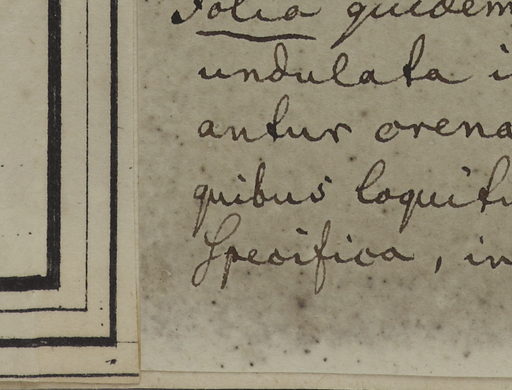 Folia quidem
undulata i
antur crena
quibus loquitu
specifica, in